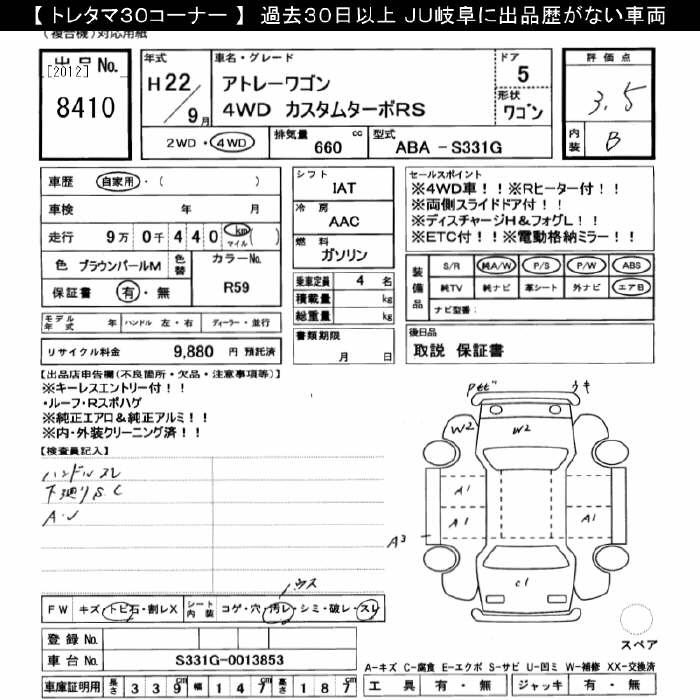 【 トレタマ30コーナー 】 過去30日以上 JU岐阜に出品歴がない車両
(複合機)対応用紙
出品No.
[2012]
8410
年式
H22/9月
車名・グレード
アトレーワゴン
4WD カスタムターボRS
ドア
5
形状
ワゴン
2WD・4WD
排気量
660 cc
型式
ABA - S331G
評価点
3.5
内装
B
車歴 自家用・( )
車検 年 月
走行 9万 0千 4 4 0 km マイル ( )
色 ブラウンパールM
色替
カラーNo.
R59
保証書 有・無
シフト
IAT
冷房
AAC
燃料
ガソリン
乗車定員 4 名
積載量 kg
総重量 kg
セールスポイント
※4WD車!!※Rヒーター付!!
※両側スライドドア付!!
※ディスチャージH&フォグL!!
※ETC付!!※電動格納ミラー!!
装備品
S/R 純A/W P/S P/W ABS
純TV 純ナビ 革シート 外ナビ エアB
ナビ型番:
モデル年式 年 ハンドル 左・右 ディーラー・並行
リサイクル料金 9,880 円 預託済
書類期限
月 日
後日品
取説 保証書
【出品店申告欄(不良箇所・欠品・注意事項等)】
※キーレスエントリー付!!
・ルーフ・Rスポハゲ
※純正エアロ&純正アルミ!!
※内・外装クリーニング済!!
【検査員記入】
ハンドルスレ
下廻りS.C
A.U
W2
W2
A1
A1
A1
A3
C1
FW キズ・トビ石・割レX
シート内装 コゲ・穴・汚レ・シミ・破レ・スレ
登録No.
車台No. S331G-0013853
スペア
A-キズ C-腐食 E-エクボ S-サビ U-凹ミ W-補修 XX-交換済
車庫証明用 長さ 3 3 9 cm 幅 1 4 7 cm 高さ 1 8 7 cm
工具 有・無 ジャッキ 有・無